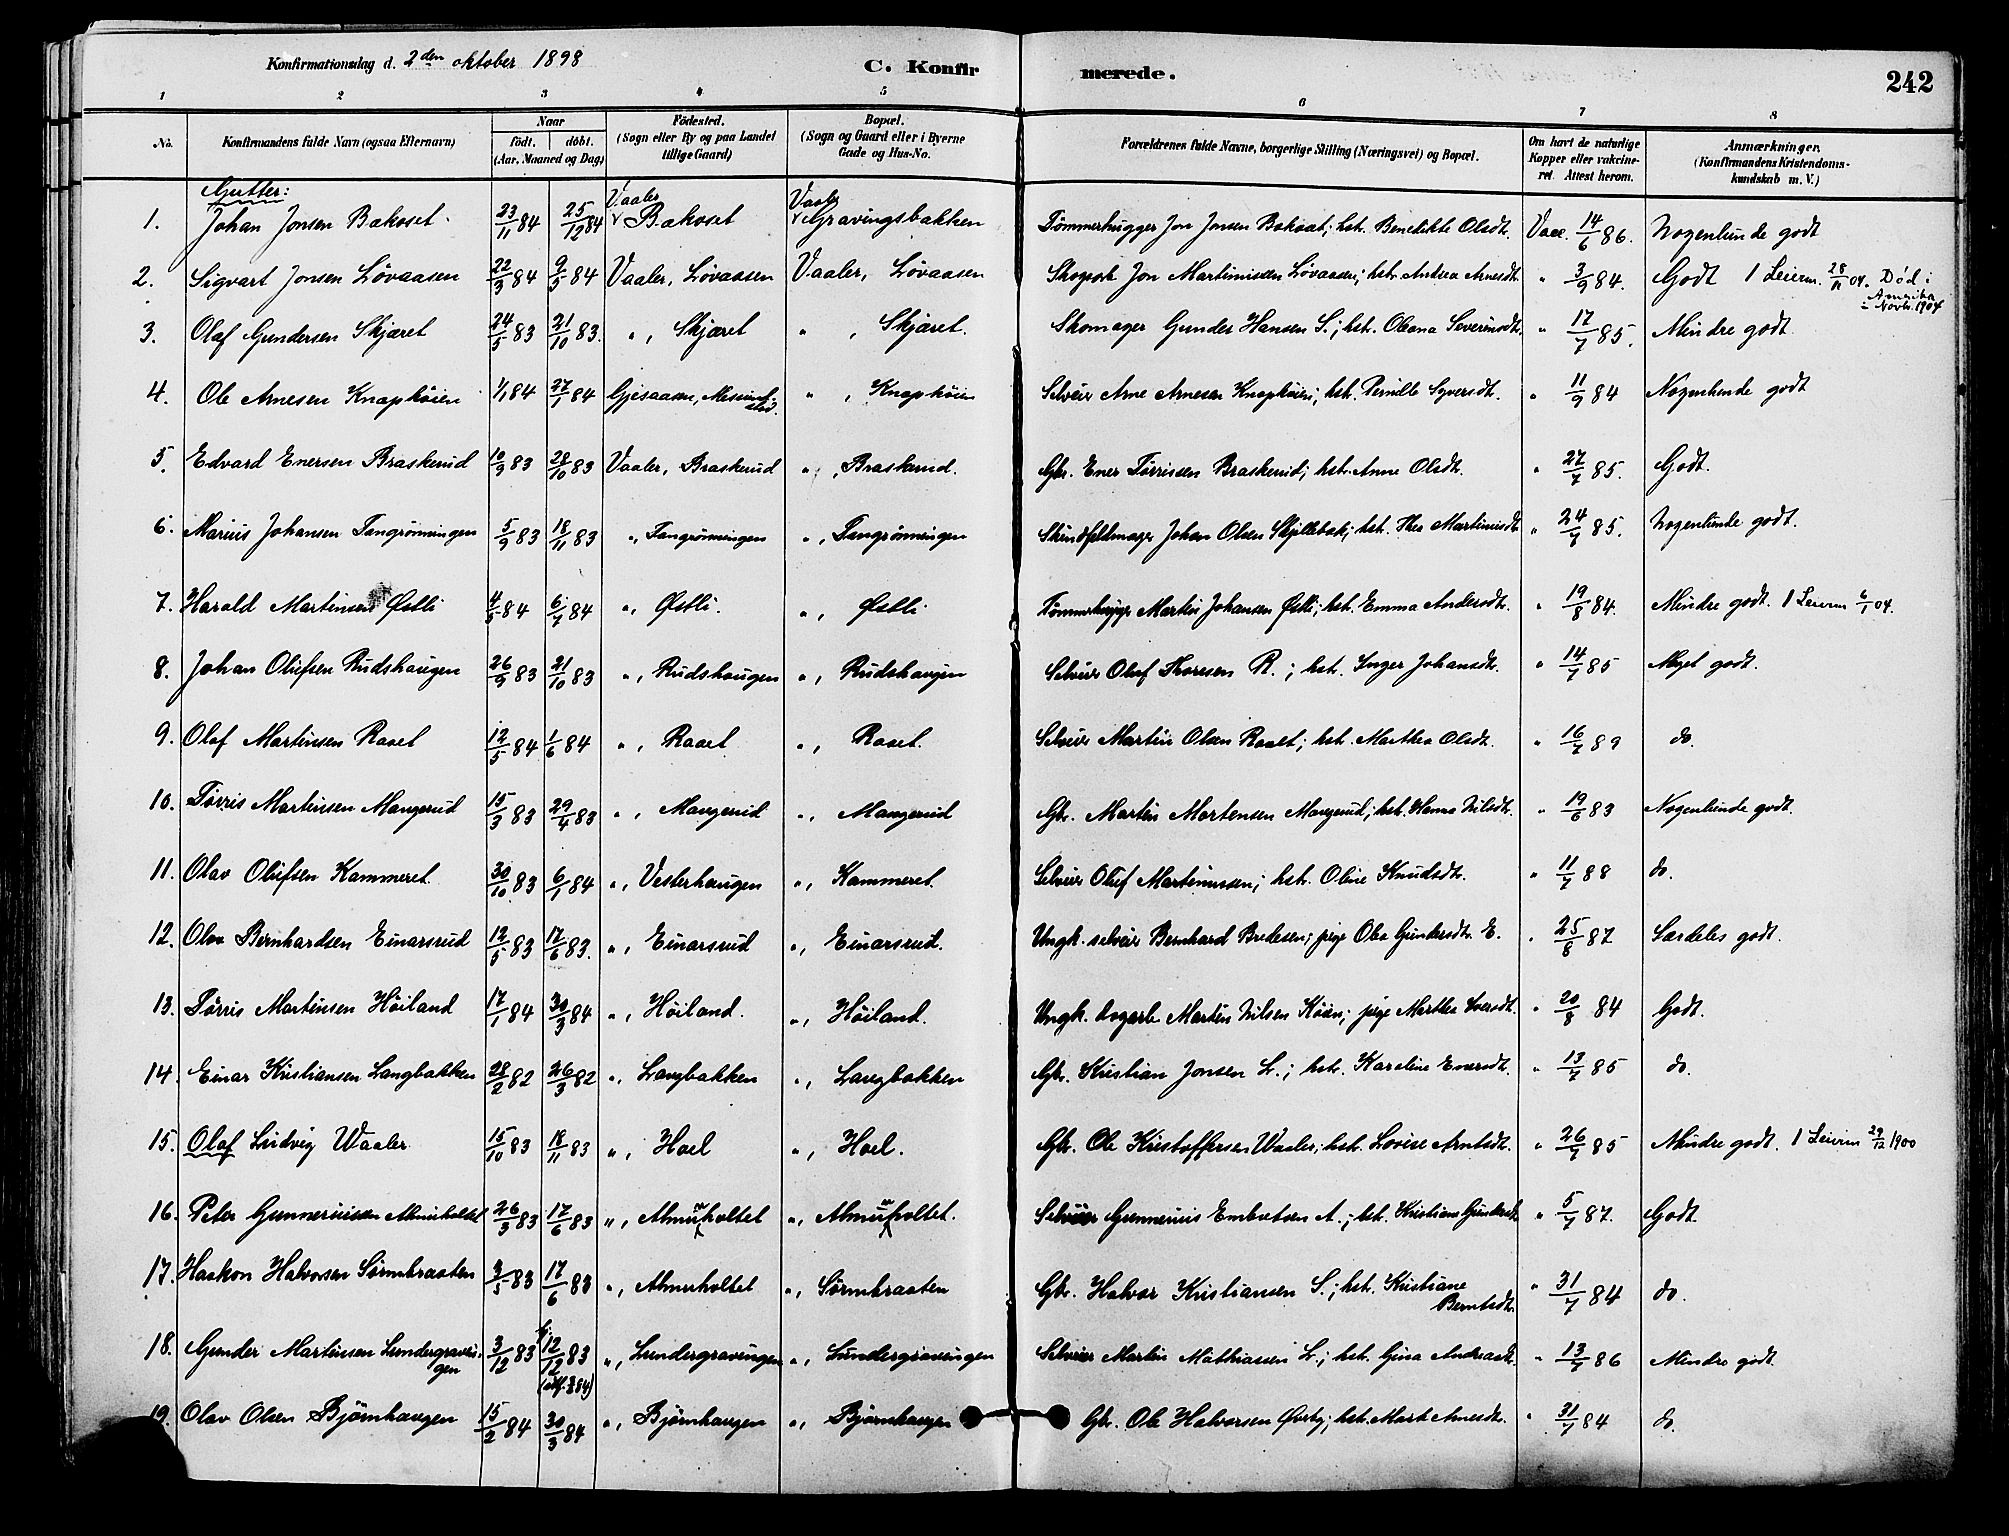 Konfirmationsdag d. 2den oktober 1898 C. Konfir merede. 242
1 2 3 4 5 6 7 8
No. Konfirmandens fulde Navn (ogsaa Efternavn) Naar født. døbt. (Aar, Maaned og Dag) Fødested. (Sogn eller By og paa Landet tillige Gaard) Bopæl. (Sogn og Gaard eller i Byerne Gade og Hus-No. Forældrenes fulde Navne, borgerlige Stilling (Næringsvei) og Bopæl. Om havt de naturlige Kopper eller vakcineret. Attest herom. Anmærkninger. (Konfirmandens Kristendomskundskab m. V.)
Gutter:
1. Johan Jonsen Bakoset 23/11 84 25/12 84 Vaaler Bakoset Vaaler Gravingsbakken Tømmerhugger Jon Jonsen Bakoset; hst. Benedikte Olsdt. Vacc. 14/6 86. Nogenlunde godt
2. Sigvart Jonsen Løvaasen 22/3 84 9/5 84 Vaaler, Løvaasen Vaaler, Løvaasen Jon Martinussen Løvaasen; hst. Andrea Arnesdt. " 3/9 84. Godt 1 Leierm. 28/11 04. Død i Amerika i Novbr. 1904
3. Olaf Gundersen Skjæret 24/5 83 21/10 83. ", Skjæret ", Skjæret. Skomager Gunder Hansen S.; hst. Oleana Severinsdt. " 17/7 85. Mindre godt
4. Ole Arnesen Knapkøien 1/1 84 27/1 84 Gjesaasen, ", Knapkøien Selveier Arne Arnesen Knapkøien; hst. Pernille Syversdt. " 11/9 84 Nogenlunde godt
5. Edvard Enersen Braskerud 10/9 83 28/10 83 Vaaler, Braskerud ", Braskerud. Gbr. Ener Tørrissen Braskerud; hst. Anne Olsdt. " 27/7 85. Godt.
6. Marius Johansen Tangrønningen 5/9 83 18/11 83 ", Tangrønningen ", Tangrønningen Skindfeldmager Johan Olsen Skjillebæk; hst. Thea Martinusdt. " 24/7 85. Nogenlunde godt.
7. Harald Martinsen Østli 4/5 84 6/7 84 ", Østli. ", Østli Tømmerhugger Martin Johansen Østli; hst. Emma Andersdt. " 19/8 84. Mindre godt. 1 Leierm 6/1 04.
8. Johan Olufsen Rudshaugen 26/9 83 21/10 83 ", Rudshaugen ", Rudshaugen Selveier Oluf Thoresen R.; hst. Inger Johansdt. " 14/7 85 Meget godt.
9. Olaf Martinsen Raaet 12/5 84 1/6 84 ", Raaet ", Raaet. Selveier Martin Olsen Raaet; hst. Marthea Olsdt. " 16/7 89 do.
10. Tørris Martinsen Mangerud 15/3 83 29/4 83 ", Mangerud ", Mangerud Gbr. Martin Mortensen Mangerud; hst. Hanna Nilsdt. " 19/6 83 Nogenlunde godt.
11. Olav Olufsen Kammeret 30/10 83 6/1 84 ", Vesterhaugen ", Kammeret. Selveier Oluf Martinussen; hst. Oline Knudsdt. " 11/7 88 do.
12. Olav Bernhardsen Einarsrud 12/5 83 17/6 83. ", Einarsrud ", Einarsrud. Ungk. selveier Bernhard Bredesen; pige Olea Gundersdt. E. " 25/8 87 Særdeles godt.
13. Tørris Martinsen Høiland 17/1 84 30/3 84 ", Høiland. ", Høiland. Ungk. dagarb. Martin Nilsen Køien; pige Marthea Iversdt. " 20/8 84 Godt.
14. Einar Kristiansen Langbakken 28/2 82 26/3 82 ", Langbakken ", Langbakken Gbr. Kristian Jonsen L.; hst. Karoline Enersdt. " 13/7 85 do.
15. Olaf Ludvig Waaler 15/10 83 18/11 83 ", Hoel ", Hoel. Gbr. Ole Kristoffersen Waaler; hst. Lovise Arntsdt. " 26/7 85 Mindre godt. 1 Leierm 29/12 1900
16. Peter Gunneriusen Almuholtet 26/3 83 17/6 83 ", Almuholtet ", Almuholtet. Selveier Gunnerius Embretsen A.; hst. Kristiane Gundersdt. " 5/7 87. Godt
17. Haakon Halvorsen Sørmbraaten 3/5 83 17/6 83 ", Almuholtet ", Sørmbraaten Gbr. Halvor Kristiansen S.; hst. Kristiane Berntsdt. " 31/7 84 do.
18. Gunder Martinsen Lundergravingen 3/12 83 hj. 12/12 83 ", Lundergravingen ", Lundergravingen Selveier Martin Mathiassen L.; hst. Gina Andreasdt. " 13/7 86 Mindre godt.
19. Olav Olsen Bjørnhaugen 15/2 84 30/3 84 ", Bjørnhaugen ", Bjørnhaugen Gbr. Ole Halvorsen Øvrby; hst. Marte Arnesdt. " 31/7 84 do.